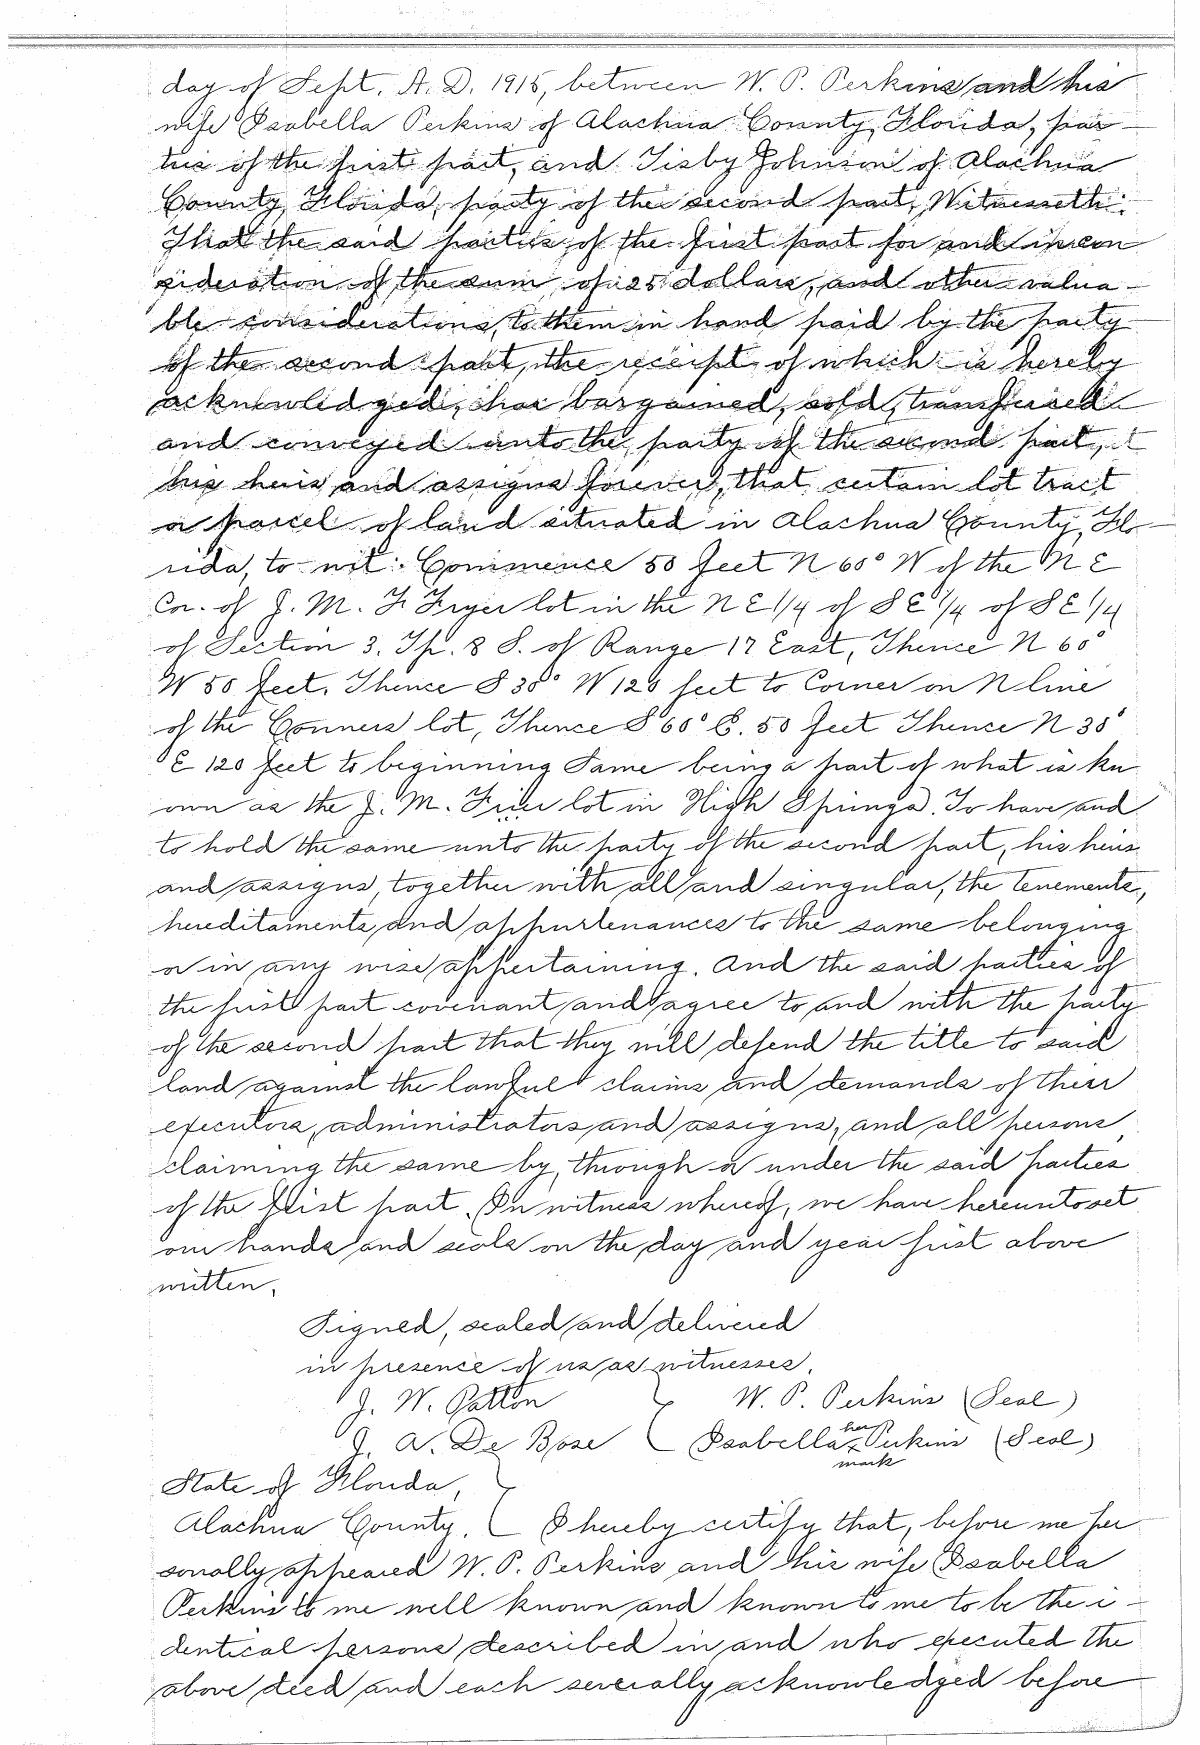 day of Sept. A. D. 1915, between W. P. Perkins and his
wife Isabella Perkins of Alachua County, Florida, par-
ties of the first part, and Tisby Johnson of Alachua
County, Florida, party of the second part, Witnesseth:
That the said parties of the first part for and in con
sideration of the sum of 25 dollars, and other valua-
ble considerations, to them in hand paid by the party
of the second part, the receipt of which is hereby
acknowledged, has bargained, sold, transferred
and conveyed unto the party of the second part,
his heirs and assigns forever, that certain lot tract
or parcel of land situated in Alachua County, Flo-
rida, to-wit: Commence 50 feet N 60° W of the N E
Cor. of J. M. F Fryer lot in the N E 1/4 of S E 1/4 of S E 1/4
of Section 3. Tp. 8 S. of Range 17 East, Thence N 60°
W 50 feet. Thence S 30° W 120 feet to Corner on N line
of the Conners lot, Thence S 60° E. 50 feet Thence N 30°
E 120 feet to beginning Same being a part of what is kn
own as the J. M. Frier lot in High Springs. To have and
to hold the same unto the party of the second part, his heirs
and assigns, together with all and singular, the tenements,
hereditaments and appurtenances to the same belonging
or in any wise appertaining. And the said parties of
the first part covenant and agree to and with the party
of the second part that they will defend the title to said
land against the lawful claims and demands of their
executors, administrators and assigns, and all persons
claiming the same by, through or under the said parties
of the first part. In witness whereof, we have hereunto set
our hands and seals on the day and year first above
written.
Signed, sealed and delivered
in presence of us as witnesses.
J. W. Patton W. P. Perkins (Seal)
J. A. De Bose Isabella her x mark Perkins (Seal)
State of Florida,
Alachua County. I hereby certify that, before me per
sonally appeared W. P. Perkins and his wife Isabella
Perkins to me well known and known to me to be the i-
dentical persons described in and who executed the
above deed and each severally acknowledged before